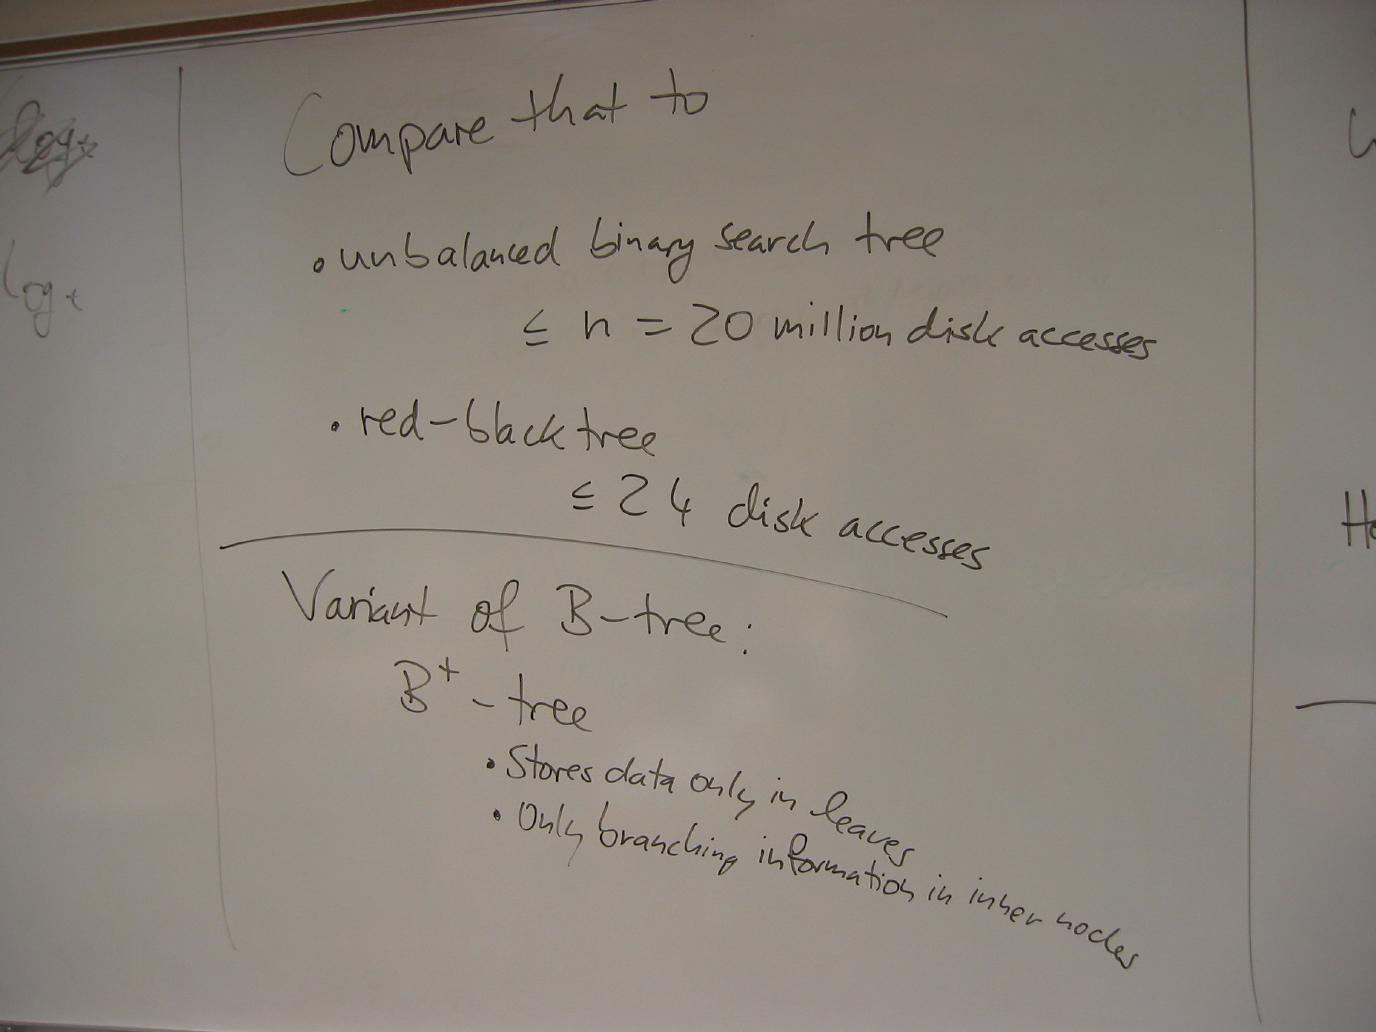 Compare that to
• unbalanced binary search tree
≤ n = 20 million disk accesses
• red-black tree
≤ 24 disk accesses
Variant of B-tree:
B⁺-tree
• Stores data only in leaves
• Only branching information in inner nodes
log t